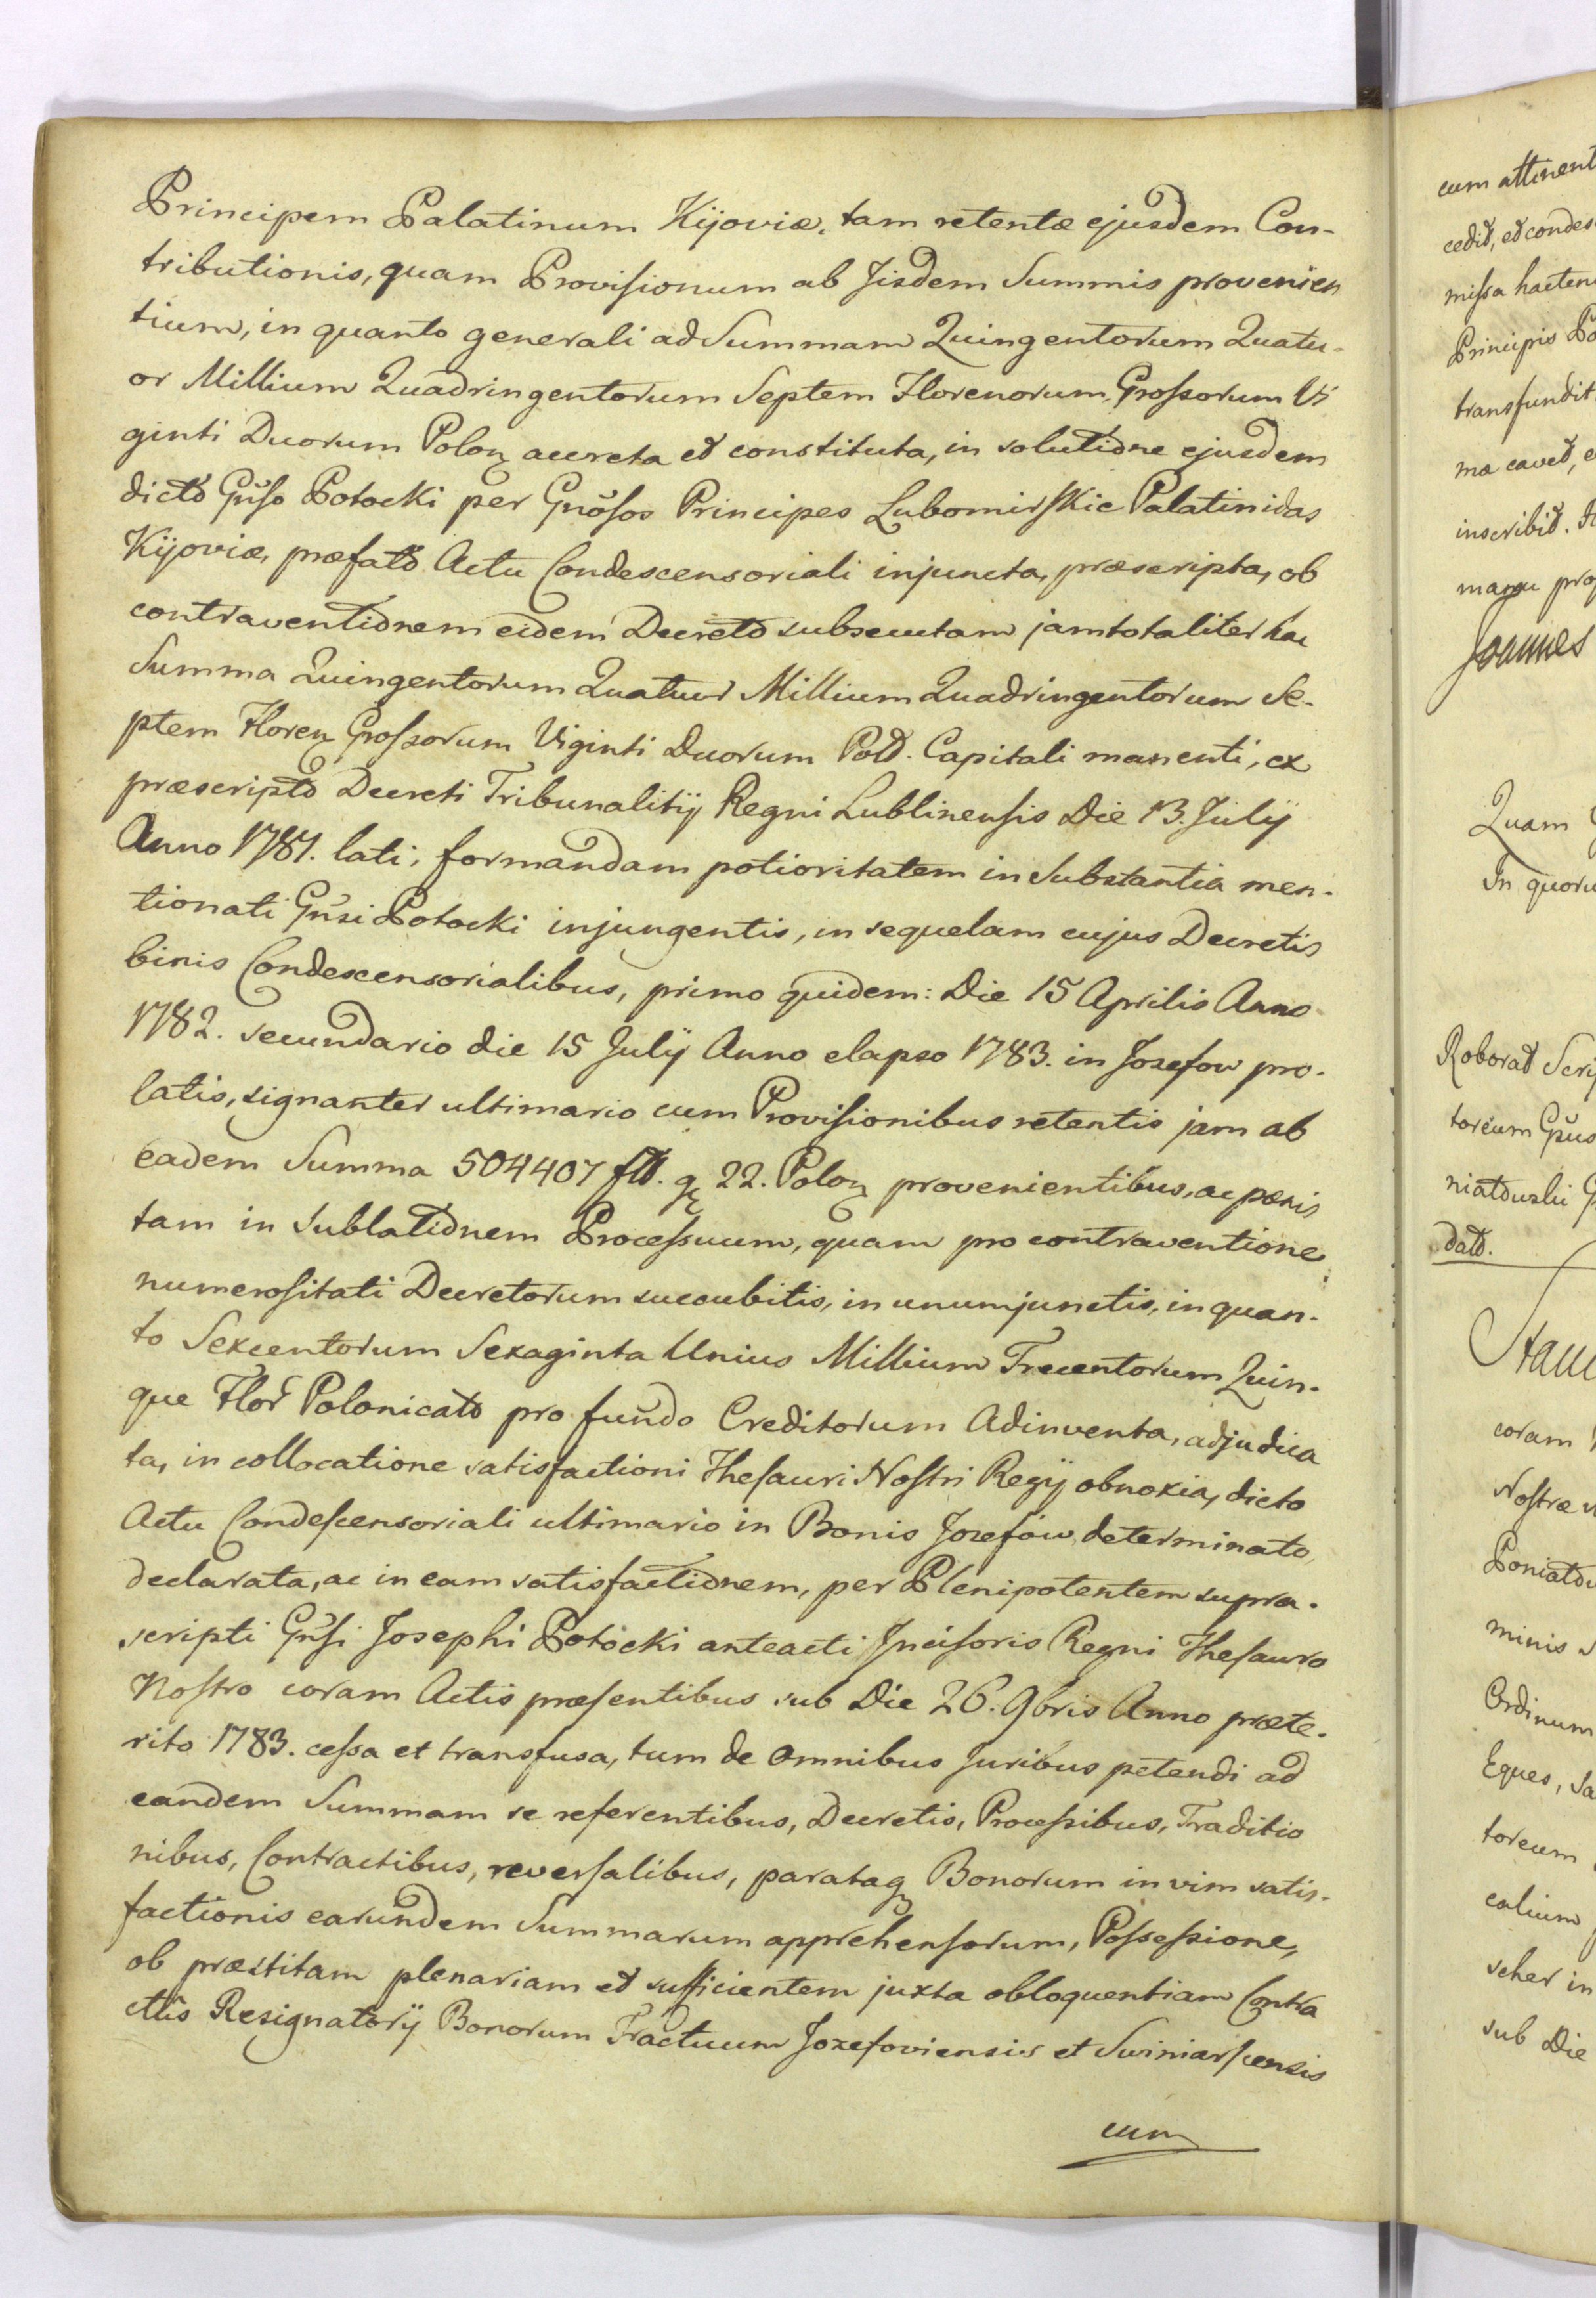 Principem Palatinum Kijoviæ, tam retentæ ejusdem Con-
tributionis, quam Provisionum ab Jisdem Summis provenien
tium, in quanto generali ad Summam Quingentorum Quatu-
or Millium Quadringentorum Septem Florenorum, Grossorum Vi
ginti Duorum Polon accreta et constituta, in solutione ejusdem
dicto Gnso Potocki per Gnosos Principes Lubomirskie Palatinidas
Kijoviæ, præfato Actu Condescensoriali injuncta, præscripta, ob
contraventionem eidem Decreto subsecutam jam totaliter hac
Summa Quingentorum Quatuor Millium Quadringentorum Se-
ptem Floren Grossorum Viginti Duorum Pol. Capitali manenti, ex
præscripto Decreti Tribunalitij Regni Lublinensis Die 13. Julij
Anno 1781. lati, formandam potioritatem in Substantia men-
tionati Gnsi Potocki injungentis, in sequelam cujus Decretis
binis Condescensorialibus, primo quidem: Die 15 Aprilis Anno
1782. secundario die 15 Julij Anno elapso 1783. in Jozefow pro-
latis, signanter ultimario cum Provisionibus retentis jam ab
eadem Summa 504407 fll. gr 22. Polon provenientibus, ac pænis
tam in Sublationem Processuum, quam pro contraventione
numerositati Decretorum succubitis, in unum junctis, in quan-
to Sexcentorum Sexaginta Unius Millium Trecentorum Quin-
que Flor Polonicato pro fundo Creditorum Adinventa, adjudica
ta, in collocatione satisfactioni Thesauri Nostri Regij obnoxia, dicto
Actu Condescensoriali ultimario in Bonis Jozefów determinato
declarata, ac in eam satisfactionem, per Plenipotentem supra-
scripti Gnsi Josephi Potocki anteacti Incisoris Regni Thesauro
Nostro coram Actis præsentibus sub Die 26. 9bris Anno præte-
rito 1783. cessa et transfusa, tum de omnibus Juribus petendi ad
eandem Summam se referentibus, Decretis, Processibus, Traditio
nibus, Contractibus, reversalibus, parataq Bonorum in vim satis-
factionis earundem Summarum apprehensorum, Possessione,
ob præstitam plenariam et sufficientem juxta obloquentiam Contra
ctus Resignatorij Bonorum Tractuum Jozefoviensis et Swiniarscensis
cum
cum attinent
cedit, et condes
missa hacten
Principis Po
transfundit
ma cavet, e
inscribit.
manu prop
Joannes
Quam
In quoru
Roborat Scrip
toreum Gnus
niatowski G
dato.
Stani
coram
Nostræ
Poniato
minis
Ordinum
Eques, Sa
toreum
calium
scher in
sub Die